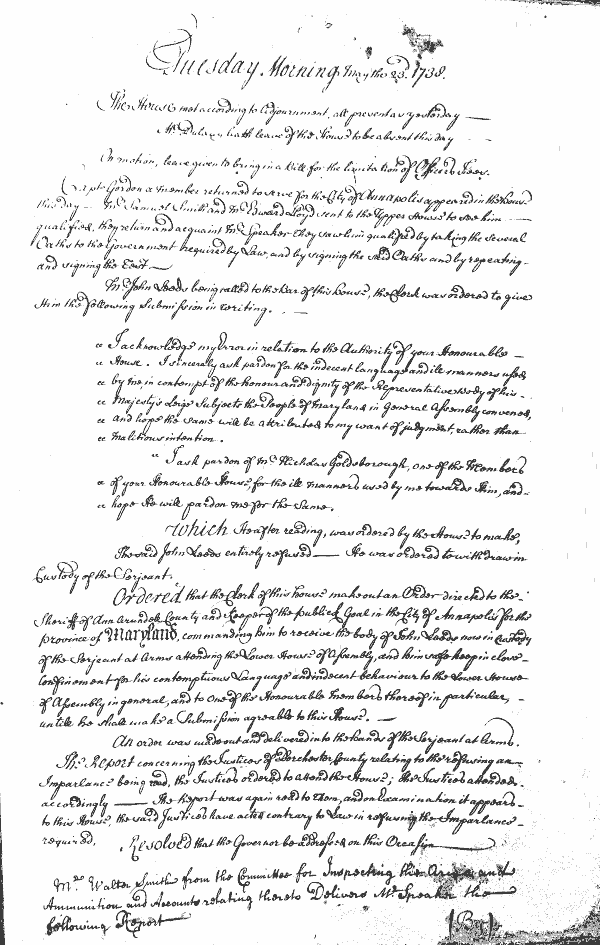 Tuesday Morning May the 23d 1738.
The House met according to Adjournment, all present as yesterday —
Mr. Dulany hath leave of the House to be absent this day
On motion, leave given to bring in a Bill for the limitation of Officers Fees.
Capt. Gordon a member returned to serve for the City of Annapolis appeared in the house
this day — Mr. Samuel Smith and Mr. Edward Lloyd sent to the Upper House to see him —
qualified, they return and acquaint Mr. Speaker They saw him qualified by taking the several
Oaths to the Government required by Law, and by signing the said Oaths and by repeating -
and signing the Test —
Mr. John Leeds being called to the Bar of this house, the Clerk was ordered to give
Him the following Submission in writing. —
" I acknowledge my Error in relation to the Authority of your Honourable —
" House. I sincerely ask pardon for the indecent language and ill manners used,
" by me, in contempt of the honour and dignity of the Representative Body of his -
" Majesty's Leige Subjects the People of Maryland in General Assembly convened,
" and hope the same will be attributed to my want of judgment, rather than
" malitious intention.
" I ask pardon of Mr. Nicholas Goldsborough, one of the Members
" of your Honourable House, for the ill manners used by me towards Him, and -
" hope He will pardon me for the Same.
Which He after reading, was ordered by the House to make,
The said John Leeds entirely refused — He was ordered to withdraw in
Custody of the Serjeant.
Ordered that the Clerk of this house make out an Order directed to the -
Sheriff of Ann Arundell County and Keeper of the publick Goal in the City of Annapolis for the
province of Maryland, commanding him to receive the body of John Leeds now in Custody
of the Serjeant at Arms attending the Lower House of Assembly, and him safe keep in close -
Confinement for his contemptious Language and indecent behaviour to the Lower House
of Assembly in general, and to one of the Honourable Members thereof in particular,
untill he shall make a Submission agreable to this House. —
An order was made out and delivered into the hands of the Serjeant at Arms.
The Report concerning the Justices of Dorchester County relating to the refusing an -
Imparlance being read, the Justices ordered to attend the House; the Justices attended
accordingly — The Report was again read to them, and on Examination it appears -
to this House, the said Justices have acted contrary to Law in refusing the Imparlance -
required. Resolved that the Governor be addressed on this Occasion
Mr. Walter Smith from the Committee for Inspecting the Arms and
Ammunition and Accounts relating thereto Delivers Mr. Speaker the
following Report